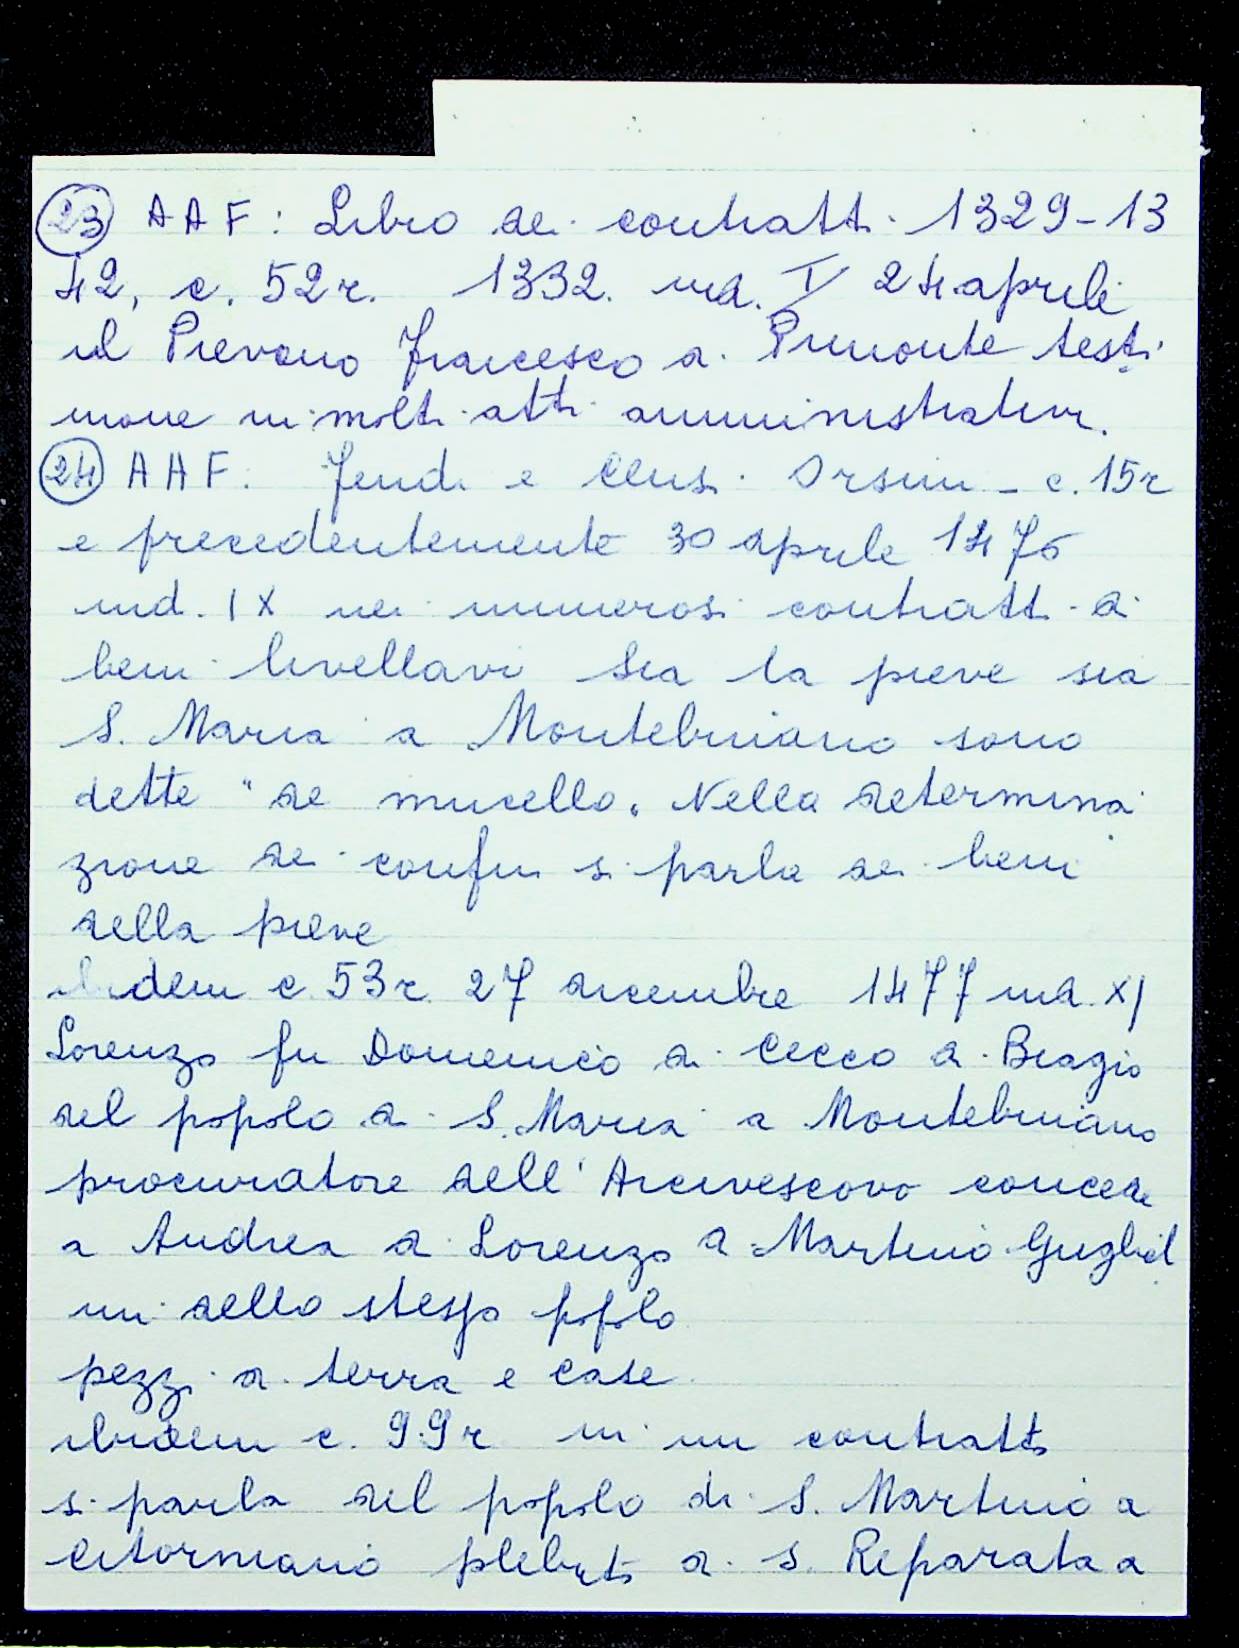 (23) AAF: Libro dei contratti 1329-13
42, c. 52r. 1332. ind. I 24 aprile
il Pievano Francesco di Pimonte testi
mone in molti atti amministrativi.
(24) AAF. Feudi e Cens. Orsini - c. 15r
e precedentemente 30 aprile 1476
ind. IX nei numerosi contratti di
beni livellari sia la pieve sia
S. Maria a Montebuiano sono
dette "de mucello". Nella determina
zione dei confini si parla dei beni
della pieve
ibidem c 53r 27 dicembre 1477 ind. XI
Lorenzo fu Domenico di Cecco di Biagio
del popolo di S. Maria a Montebuiano
procuratore dell'Arcivescovo concede
a Andrea di Lorenzo di Martino Guglel
mi dello stesso popolo
pezzi di terra e case
ibidem c. 99r in un contratto
si parla del popolo di S. Martino a
plebato di S. Reparata a